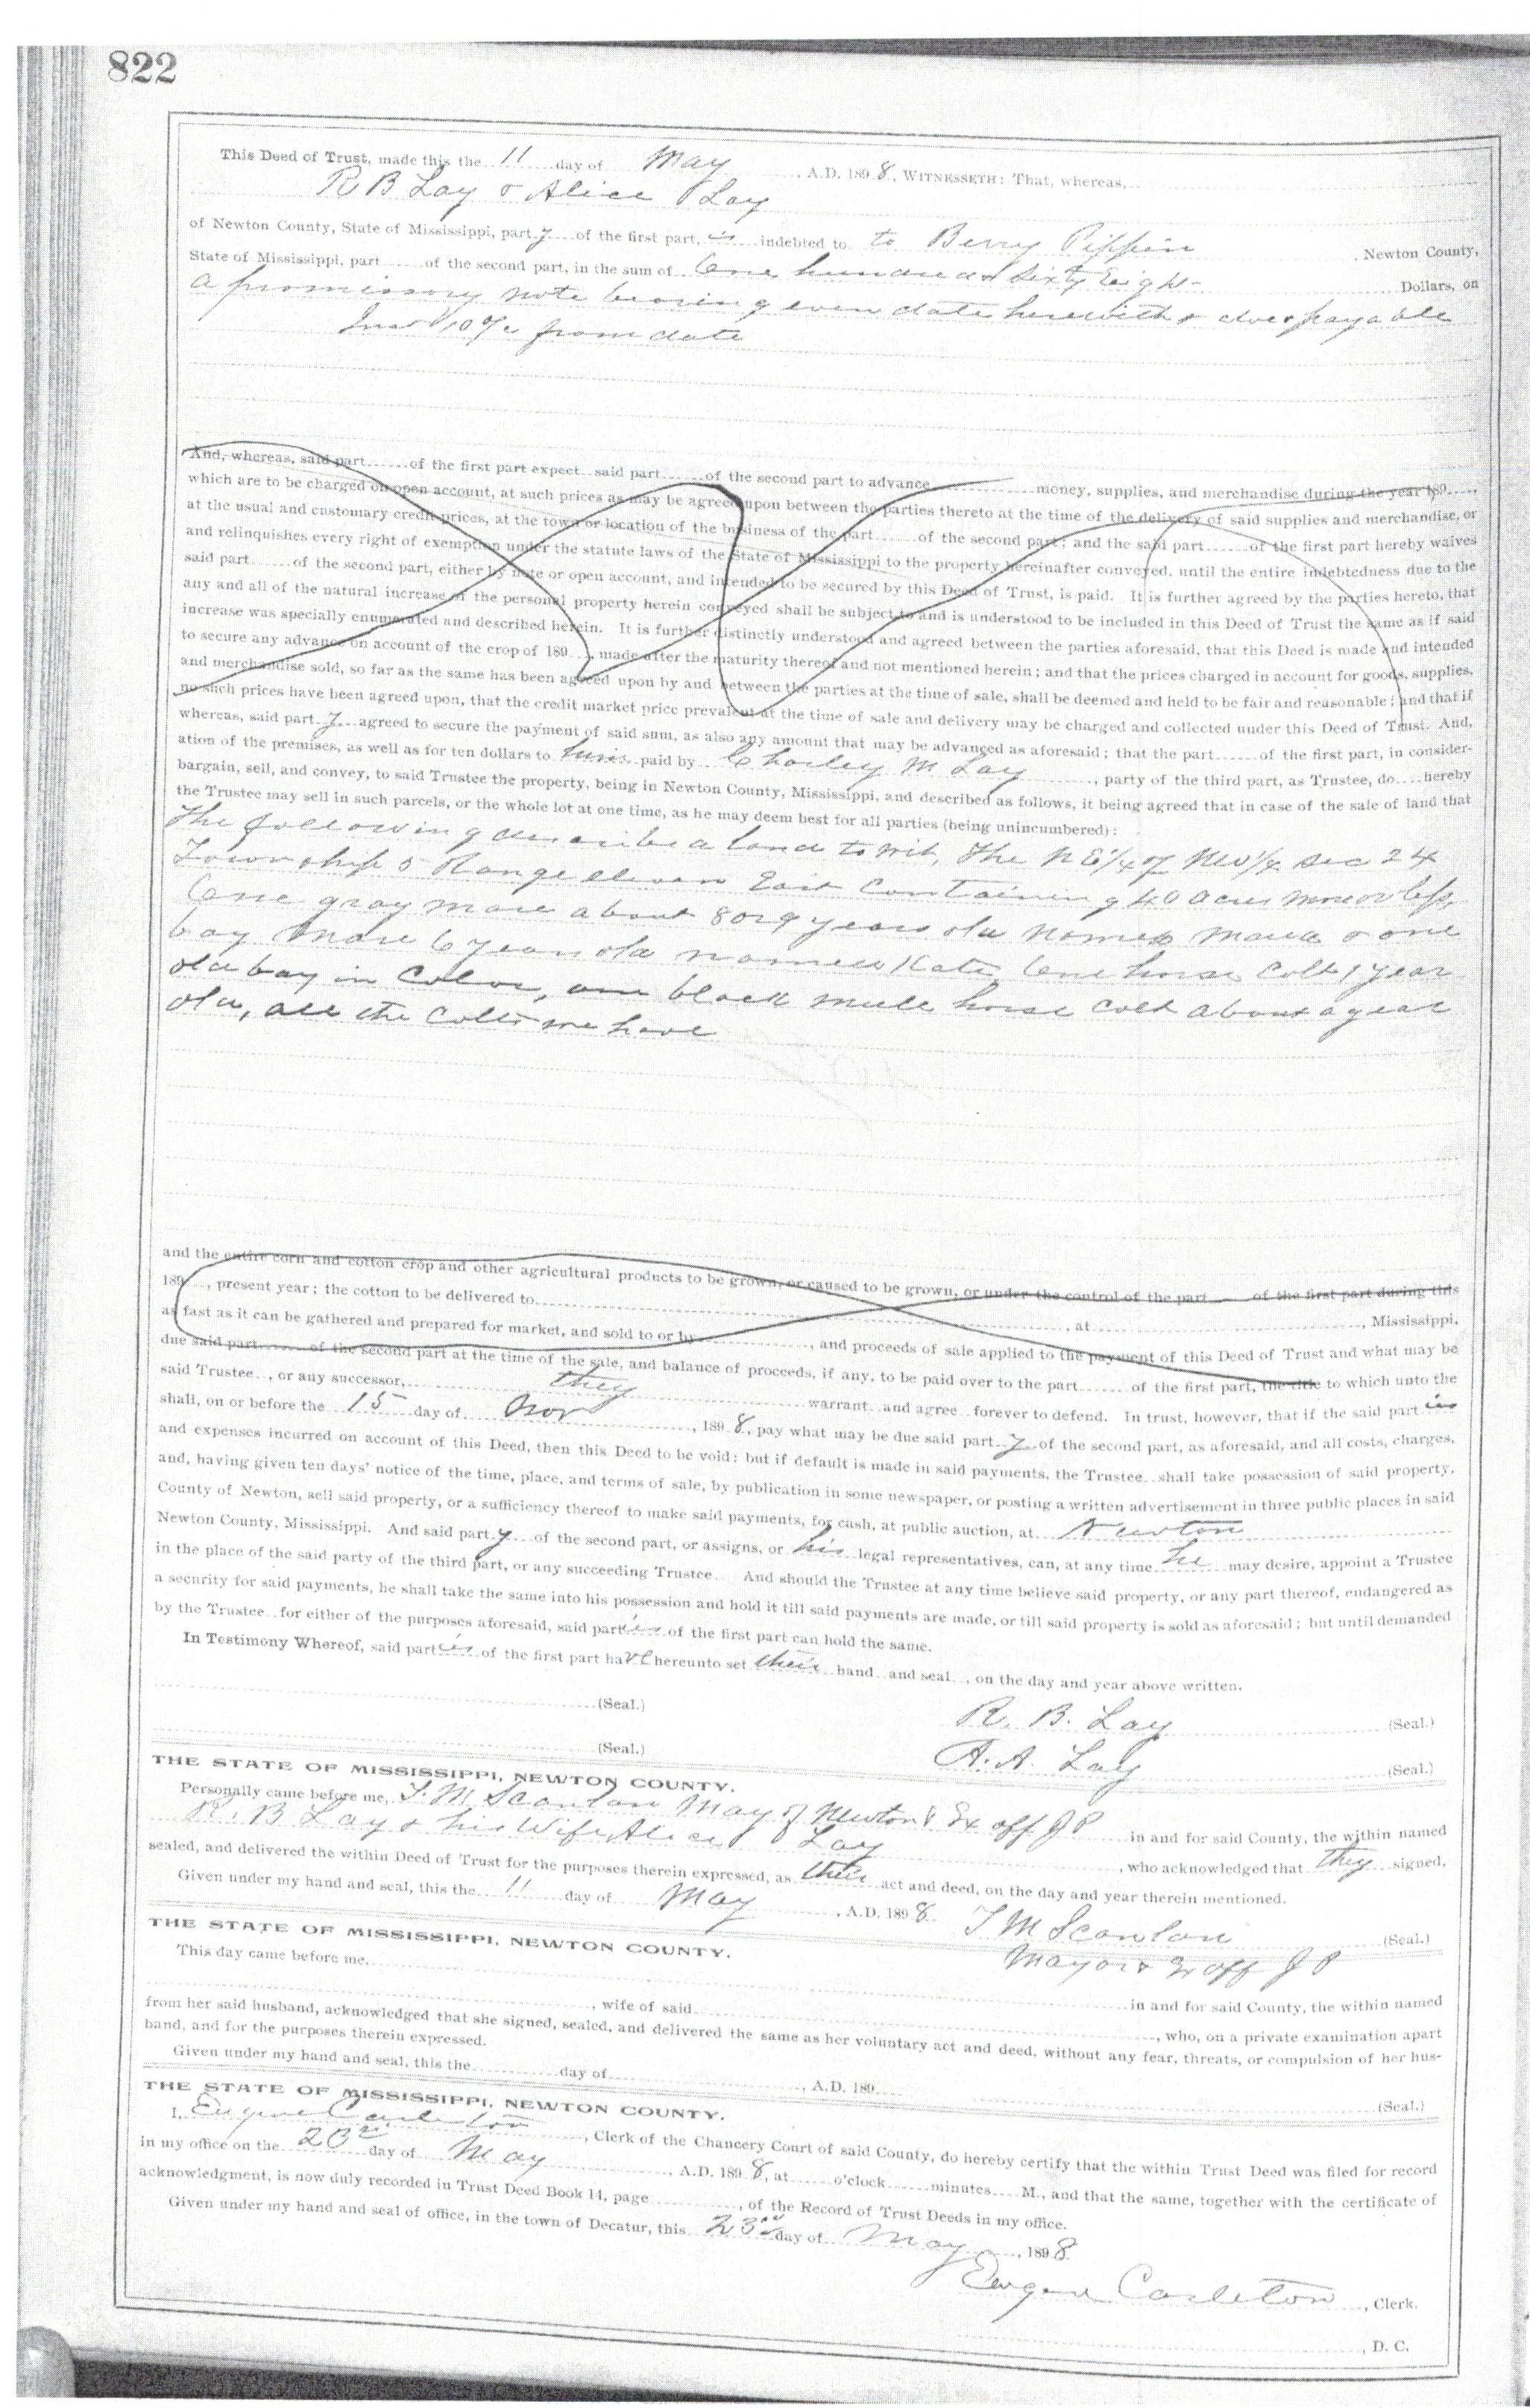 822
This Deed of Trust, made this the 11 day of May, A.D. 1898, WITNESSETH: That, whereas,
R B Lay & Alice Lay
of Newton County, State of Mississippi, party of the first part, is indebted to to Berry Pippin, Newton County,
State of Mississippi, part of the second part, in the sum of One hundred & Sixty Eight Dollars, on
a promissory note bearing even date herewith & due & payable
10% from date
And, whereas, said part of the first part expect said part of the second part to advance money, supplies, and merchandise during the year 189,
which are to be charged on open account, at such prices as may be agreed upon between the parties thereto at the time of the delivery of said supplies and merchandise, or
at the usual and customary credit prices, at the town or location of the business of the part of the second part; and the said part of the first part hereby waives
and relinquishes every right of exemption under the statute laws of the State of Mississippi to the property hereinafter conveyed, until the entire indebtedness due to the
said part of the second part, either by note or open account, and intended to be secured by this Deed of Trust, is paid. It is further agreed by the parties hereto, that
any and all of the natural increase of the personal property herein conveyed shall be subject to and is understood to be included in this Deed of Trust the same as if said
increase was specially enumerated and described herein. It is further distinctly understood and agreed between the parties aforesaid, that this Deed is made and intended
to secure any advance on account of the crop of 189, made after the maturity thereof and not mentioned herein; and that the prices charged in account for goods, supplies,
and merchandise sold, so far as the same has been agreed upon by and between the parties at the time of sale, shall be deemed and held to be fair and reasonable; and that if
no such prices have been agreed upon, that the credit market price prevalent at the time of sale and delivery may be charged and collected under this Deed of Trust. And,
whereas, said party agreed to secure the payment of said sum, as also any amount that may be advanced as aforesaid; that the part of the first part, in consider-
ation of the premises, as well as for ten dollars to him paid by Charley M Lay, party of the third part, as Trustee, do hereby
bargain, sell, and convey, to said Trustee the property, being in Newton County, Mississippi, and described as follows, it being agreed that in case of the sale of land that
the Trustee may sell in such parcels, or the whole lot at one time, as he may deem best for all parties (being unincumbered):
The following described land to wit, The NE¼ of NW¼ Sec 24
Township 5 Range eleven East Containing 40 acres more or less,
One gray mare about 8 or 9 years old named Maud & one
bay Mare 6 years old named Kate, One horse Colt 1 year
old bay in Color, one black mule horse colt about a year
old, all the Colts we have
and the entire corn and cotton crop and other agricultural products to be grown, or caused to be grown, or under the control of the part of the first part during this
189, present year; the cotton to be delivered to, at, Mississippi,
as fast as it can be gathered and prepared for market, and sold to or by, and proceeds of sale applied to the payment of this Deed of Trust and what may be
due said part of the second part at the time of the sale, and balance of proceeds, if any, to be paid over to the part of the first part, the title to which unto the
said Trustee, or any successor, they warrant and agree forever to defend. In trust, however, that if the said parties
shall, on or before the 15 day of Nov, 1898, pay what may be due said party of the second part, as aforesaid, and all costs, charges,
and expenses incurred on account of this Deed, then this Deed to be void: but if default is made in said payments, the Trustee shall take possession of said property,
and, having given ten days' notice of the time, place, and terms of sale, by publication in some newspaper, or posting a written advertisement in three public places in said
County of Newton, sell said property, or a sufficiency thereof to make said payments, for cash, at public auction, at Newton
Newton County, Mississippi. And said party of the second part, or assigns, or his legal representatives, can, at any time he may desire, appoint a Trustee
in the place of the said party of the third part, or any succeeding Trustee. And should the Trustee at any time believe said property, or any part thereof, endangered as
a security for said payments, he shall take the same into his possession and hold it till said payments are made, or till said property is sold as aforesaid; but until demanded
by the Trustee for either of the purposes aforesaid, said parties of the first part can hold the same.
In Testimony Whereof, said parties of the first part have hereunto set their hand and seal, on the day and year above written.
(Seal.) R. B. Lay (Seal.)
(Seal.) A. A. Lay (Seal.)
THE STATE OF MISSISSIPPI, NEWTON COUNTY.
Personally came before me, T. M Scanlan May of Newton & Ex off J P in and for said County, the within named
R. B Lay & his Wife Alice Lay, who acknowledged that they signed,
sealed, and delivered the within Deed of Trust for the purposes therein expressed, as their act and deed, on the day and year therein mentioned.
Given under my hand and seal, this the 11 day of May, A.D. 1898 T M Scanlan (Seal.)
Mayor & Ex off J P
THE STATE OF MISSISSIPPI, NEWTON COUNTY.
This day came before me, in and for said County, the within named
, wife of said, who, on a private examination apart
from her said husband, acknowledged that she signed, sealed, and delivered the same as her voluntary act and deed, without any fear, threats, or compulsion of her hus-
band, and for the purposes therein expressed.
Given under my hand and seal, this the day of, A.D. 189 (Seal.)
THE STATE OF MISSISSIPPI, NEWTON COUNTY.
I, Eugene Carleton, Clerk of the Chancery Court of said County, do hereby certify that the within Trust Deed was filed for record
in my office on the day of May, A.D. 1898, at o'clock minutes M., and that the same, together with the certificate of
acknowledgment, is now duly recorded in Trust Deed Book 14, page, of the Record of Trust Deeds in my office.
Given under my hand and seal of office, in the town of Decatur, this 23rd day of May, 1898
Eugene Carleton, Clerk.
, D. C.